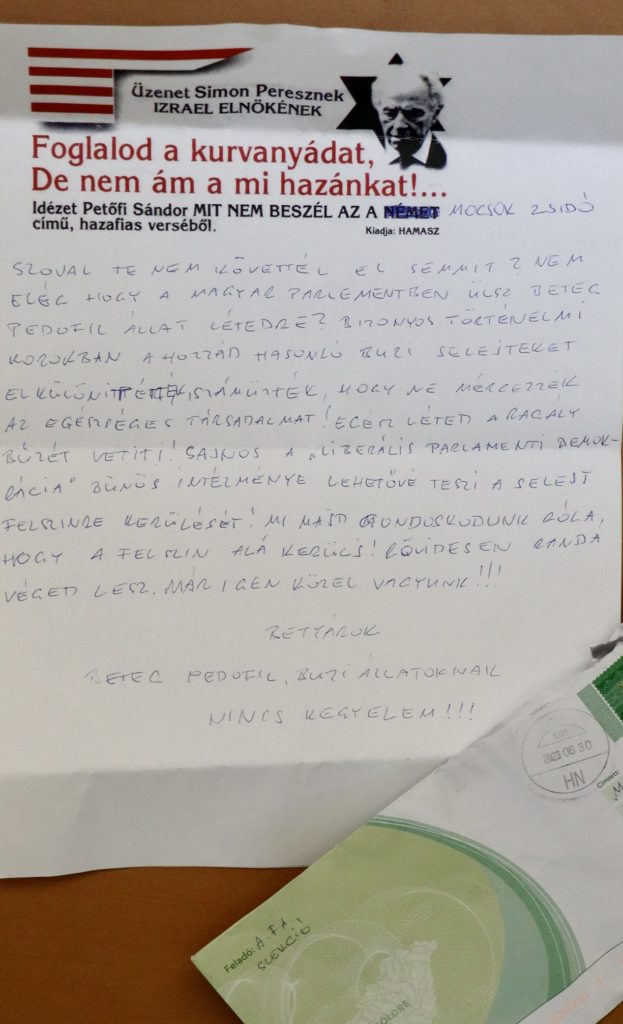 Üzenet Simon Peresznek
IZRAEL ELNÖKÉNEK
Foglalod a kurvanyádat,
De nem ám a mi hazánkat!...
Idézet Petőfi Sándor MIT NEM BESZÉL AZ A NÉMET MOCSOK ZSIDÓ
című, hazafias verséből. Kiadja: HAMASZ
SZÓVAL TE NEM KÖVETTÉL EL SEMMIT? NEM
ELÉG HOGY A MAGYAR PARLEMENTBEN ÜLSZ BETEG
PEDOFIL ÁLLAT LÉTEDRE? BIZONYOS TÖRTÉNELMI
KOROKBAN A HOZZÁD HASONLÓ BUZI SELEJTEKET
ELKÜLÖNÍTETTÉK, SZÁMŰZTÉK, HOGY NE MÉRGEZZÉK
AZ EGÉSZSÉGES TÁRSADALMAT! EGÉSZ LÉTED A RAGÁLY
BŰZÉT VETÍTI! SAJNOS A "LIBERÁLIS PARLAMENTI DEMOK-
RÁCIA" BŰNÖS INTÉZMÉNYE LEHETŐVÉ TESZI A SELEJT
FELSZINRE KERÜLÉSÉT! MI MAJD GONDOSKODUNK RÓLA,
HOGY A FELSZIN ALÁ KERÜLJ! RÖVIDESEN RANDA
VÉGED LESZ. MÁR IGEN KÖZEL VAGYUNK!!!
BETYÁROK
BETEG PEDOFIL, BUZI ÁLLATOKNAK
NINCS KEGYELEM!!!
2023 06 30
HN
Címzett:
Feladó: A.F.A.
SZEKCIÓ